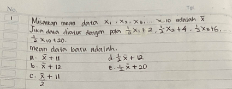 No
1 Misalkan mean data x₁, x₂, x₃, ... x₁₀ adalah x̄
Jika data diatur dengan pola ½ x₁ + 2, ½ x₂ + 4, ½ x₃ + 6,
½ x₁₀ + 20.
mean data baru adalah.
a. x̄ + 11 d. ½ x̄ + 12
b. x̄ + 12 e. ½ x̄ + 20
c. x̄ + 11
2